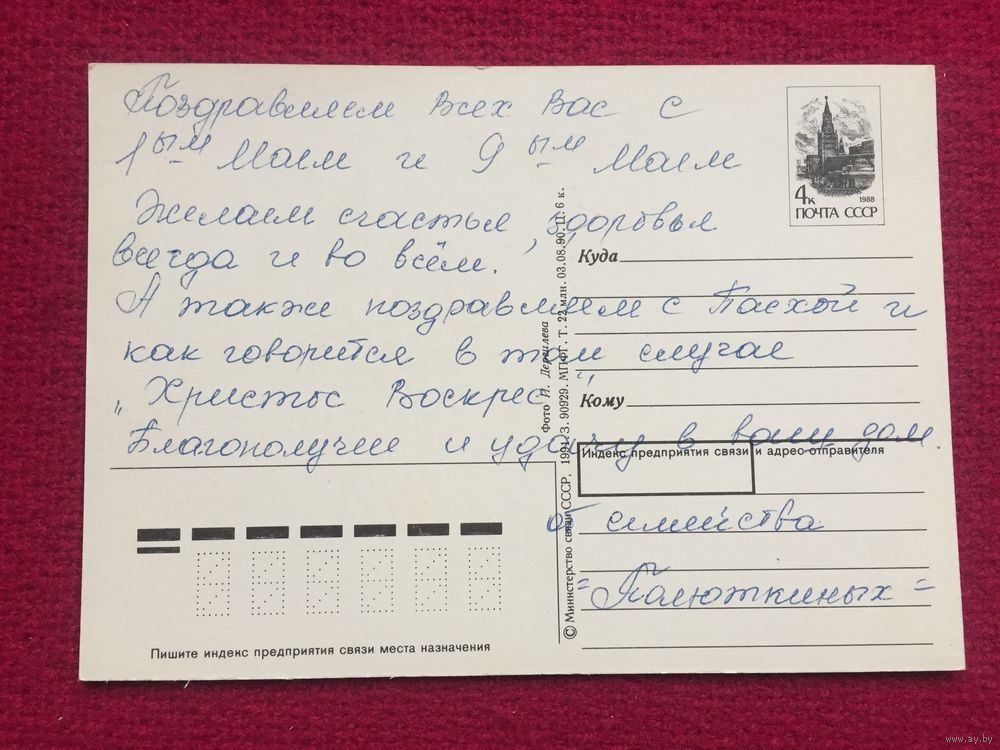 Поздравляем Всех Вас с
1ым Маем и 9ым Маем
Желаем счастья, здоровья
всегда и во всём.
А также поздравляем с Пасхой и
как говорится в том случае
„Христос Воскрес"
Благополучие и удачу в вашу дом.
от семейства
=Палюткиных=
4к
1988
ПОЧТА СССР
Куда
Кому
Индекс предприятия связи и адрес отправителя
Фото И. Дергилева
© Министерство связи СССР, 1991. З. 90929. МПФГ. Т. 22 млн. 03.08.90. Ц. 6 к.
Пишите индекс предприятия связи места назначения
www.ay.by